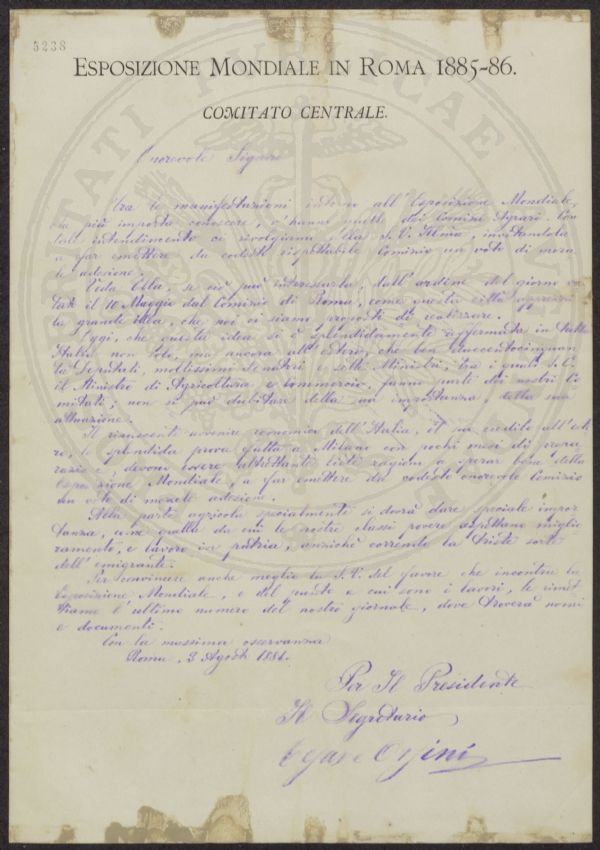 5238
ESPOSIZIONE MONDIALE IN ROMA 1885-86.
COMITATO CENTRALE.
Onorevole Signore
Tra le manifestazioni intorno all'Esposizione Mondiale,
che più importa conoscere, v'hanno quelle dei Comizi Agrari. Con
tale intendimento ci rivolgiamo alla S.V. Ill.ma, invitandola
a far emettere da codesto rispettabile Comizio un voto di mora
le adesione.
Veda Ella, se ciò può interessarla, dall'ordine del giorno vo
tato il 16 Maggio dal Comizio di Roma, come questa città apprezzi
la grande idea, che noi ci siamo proposti di realizzare.
Oggi, che questa idea si è splendidamente affermata in tutta
Italia non solo, ma ancora all'estero, che ben duecentocinquan
ta Deputati, moltissimi Senatori e sette Ministri, tra i quali S.E.
il Ministro di Agricoltura e Commercio, fanno parte dei nostri Co
mitati; non si può dubitare della sua importanza, della sua
attuazione.
Il rinascente avvenire economico dell'Italia, il suo credito all'este
ro, la splendida prova fatta a Milano con pochi mesi di prepa
razione, devono essere altrettante liete ragioni a sperar bene della
Esposizione Mondiale, a far emettere da codesto onorevole Comizio
un voto di morale adesione.
Alla parte agricola specialmente si dovrà dare speciale impor
tanza, come quella da cui le nostre classi povere aspettano miglio
ramento, e lavoro in patria, anzichè correndo la triste sorte
dell'emigrante.
Per convincere anche meglio la S.V. del favore che incontra la
Esposizione Mondiale, e del punto a cui sono i lavori, le rimet
tiamo l'ultimo numero del nostro giornale, dove troverà nomi
e documenti.
Con la massima osservanza
Roma, 3 Agosto 1881.
Per Il Presidente
Il Segretario
Orsini